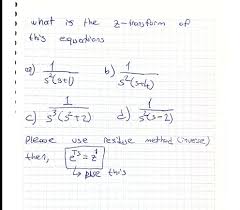 what is the z-transform of
this equations
a) 1/s²(s+1) b) 1/s²(s+4)
c) 1/s³(s²+2) d) 1/s²(s-2)
please use residue method (inverse)
then, e^Ts = z^1
↳ pluse this